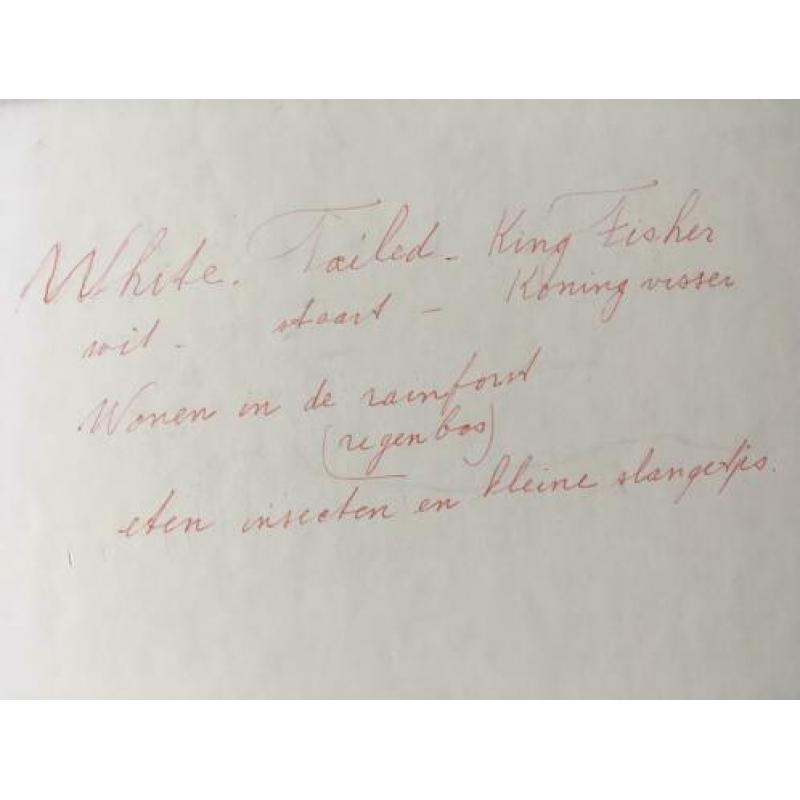 White. Tailed - King Fisher
wit - staart - Koning visser
Wonen in de rainforst
(regenbos)
eten insecten en kleine slangetjes.